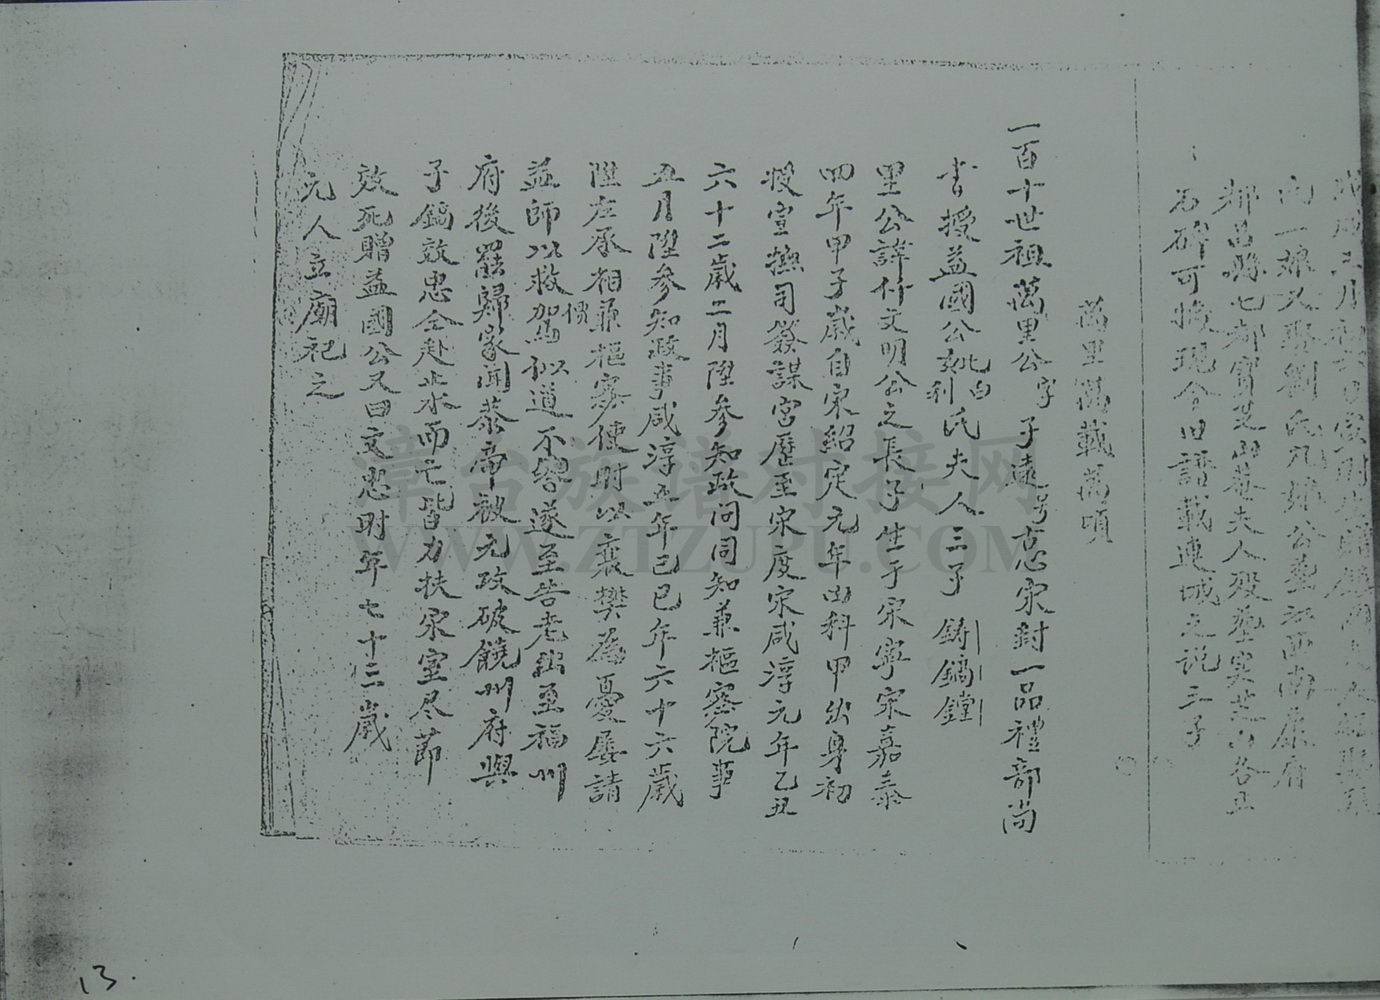 一娘又娶劉氏九娘公墓江西南康府
都昌縣七都寶芝山菴夫人歿塟寔芝山各立
石碑可據現今旧譜載連城之說三子
萬里萬載萬頃
一百十世祖萬里公字子遠号古心宋封一品禮部尚
書授益國公姚白利氏夫人三子鑄鎬鏜
里公諱仵文明公之長子生于宋寧宋嘉泰
四年甲子歲自宋紹定元年由科甲出身初
授宣撫司簽謀宮歷至宋度宋咸淳元年乙丑
六十二歲二月陞參知政同同知兼樞密院事
五月陞參知政事咸淳五年己巳年六十六歲
陞左承相兼樞密使財以襄樊為憂屡請
益師以救駕似道不響遂至告老出至福州
府後罷歸家聞恭帝被元攻破饒州府與
子鎬效忠仝赴止水而亡皆力扶宋室尽節
效死贈益國公又曰文忠財年七十三歲
元人立廟祀之
價
漳台族谱对接网
WWW.ZTZUPU.COM
13.